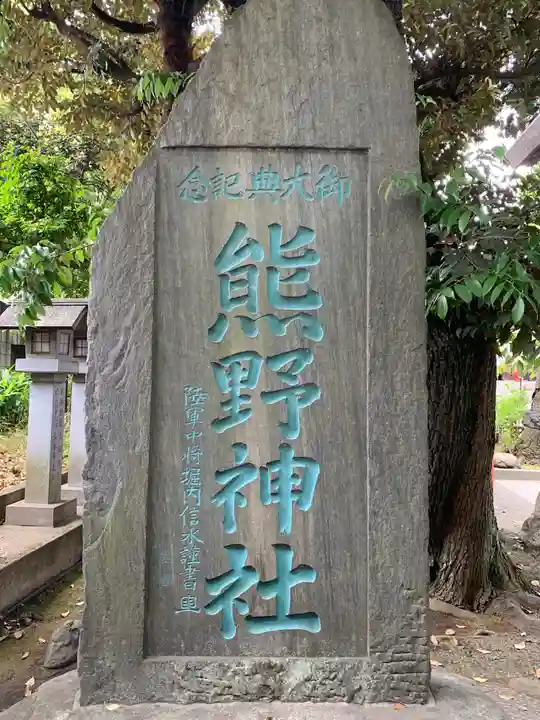 御大典記念
熊野神社
陸軍中将堀内信水謹書